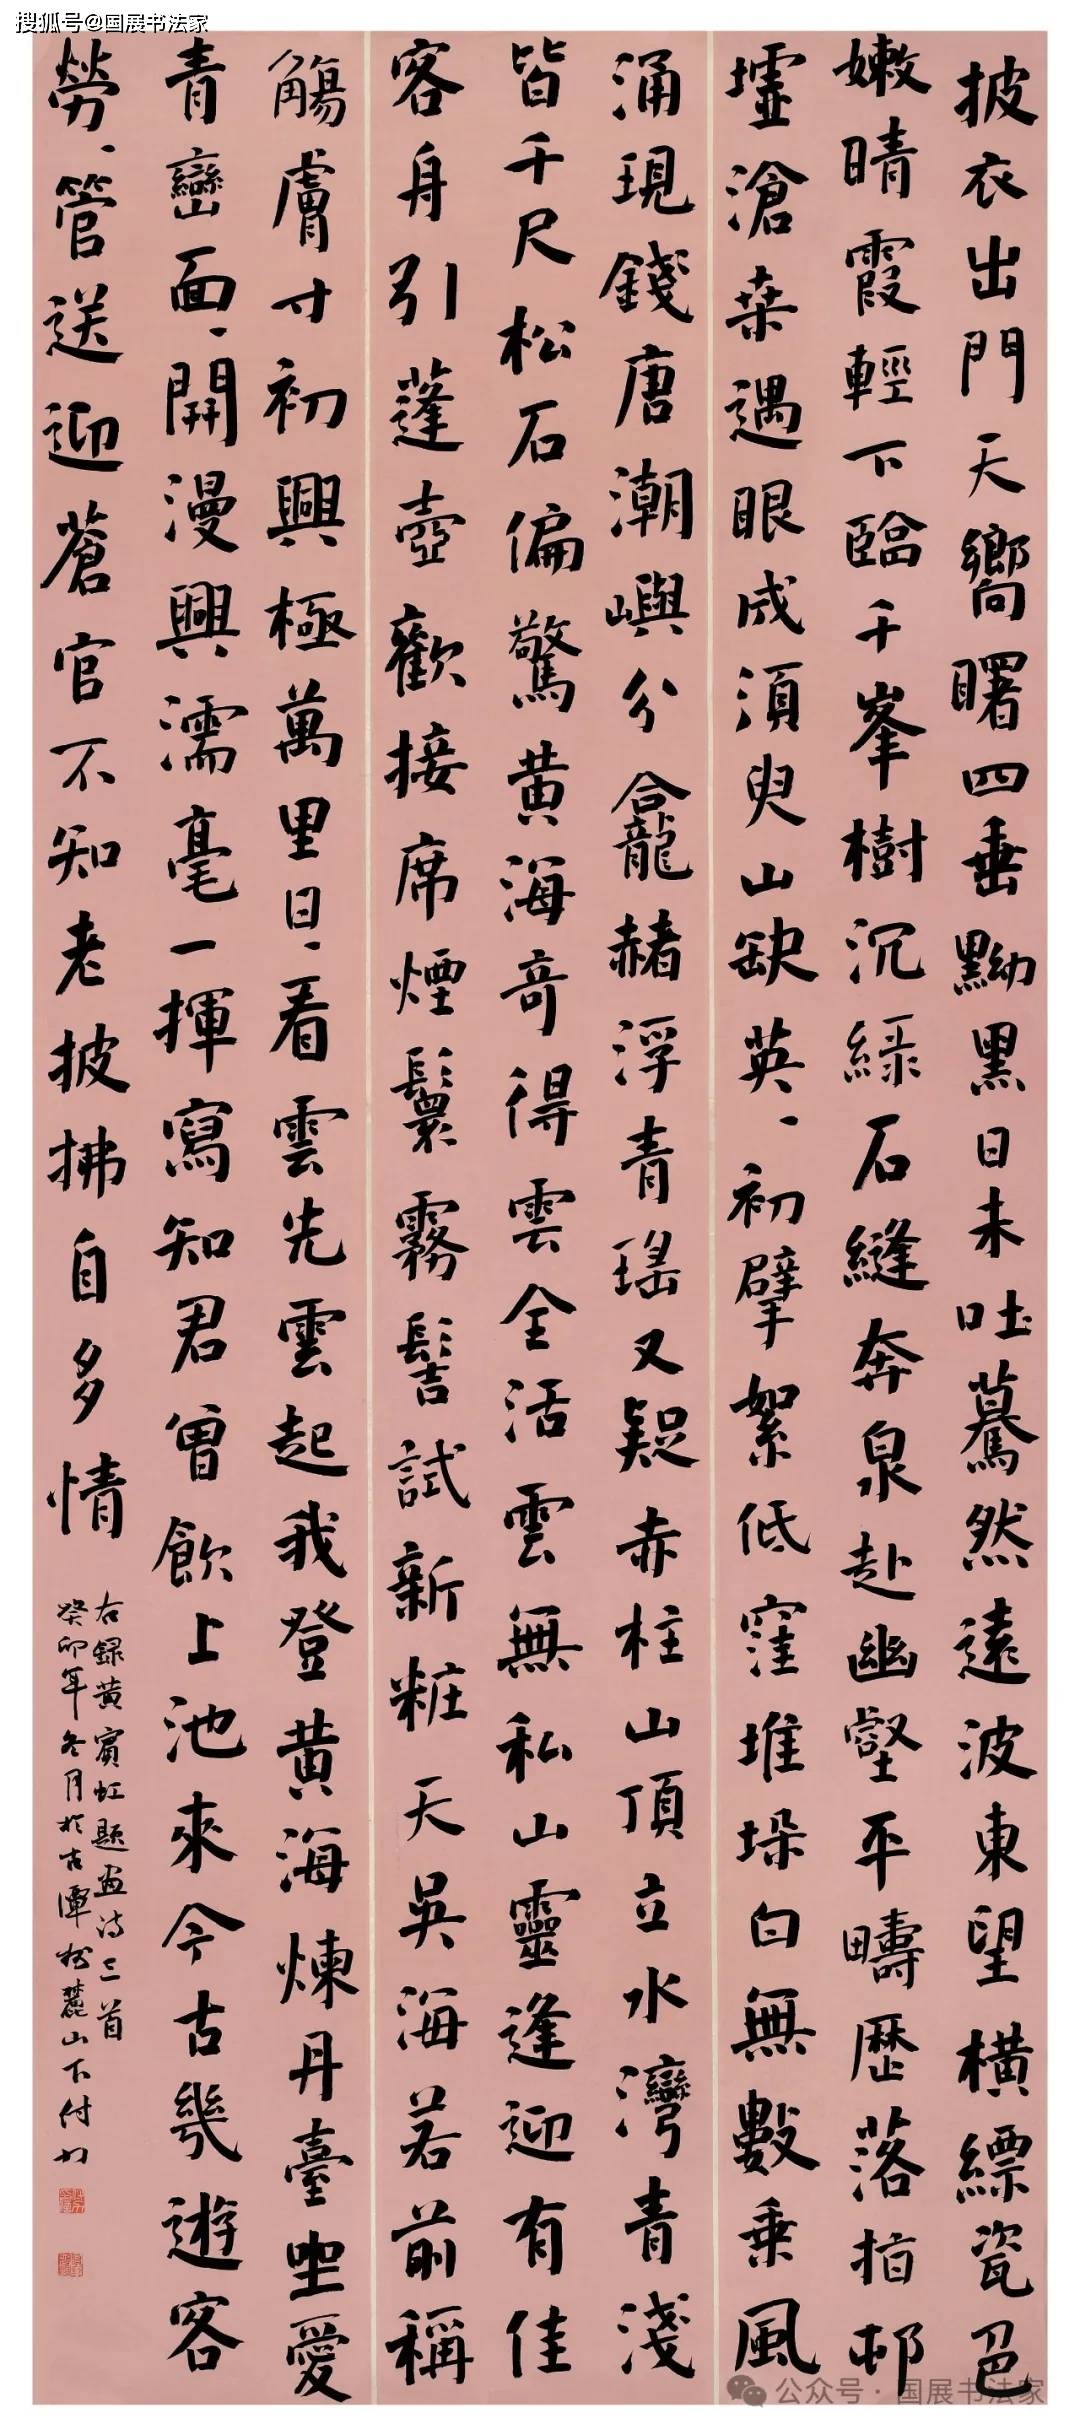 搜狐号@国展书法家
披衣出門天嚮曙四垂黝黑日未吐驀然遠波東望橫縹瓷色
嫩晴霞輕下臨千峯樹沉綠石縫奔泉赴幽壑平疇歷落指邨
墟滄桑過眼成須臾山缺英、初擘絮低窪堆垛白無數乗風
涌現錢唐潮嶼分龕赭浮青瑤又疑赤柱山頂立水灣青淺
皆千尺松石偏驚黄海奇得雲全活雲無私山靈逢迎有佳
客舟引蓬壺歡接席煙鬟霧髻試新粧天吳海若前稱
觴膚寸初興極萬里日、看雲先雲起我登黄海煉丹臺坐愛
青巒面、開漫興濡毫一揮寫知君曾飲上池來今古幾遊客
勞、管送迎蒼官不知老披拂自多情
右録黄賓虹题画诗三首
癸卯年冬月於古潭州麓山下付
公众号·国展书法家